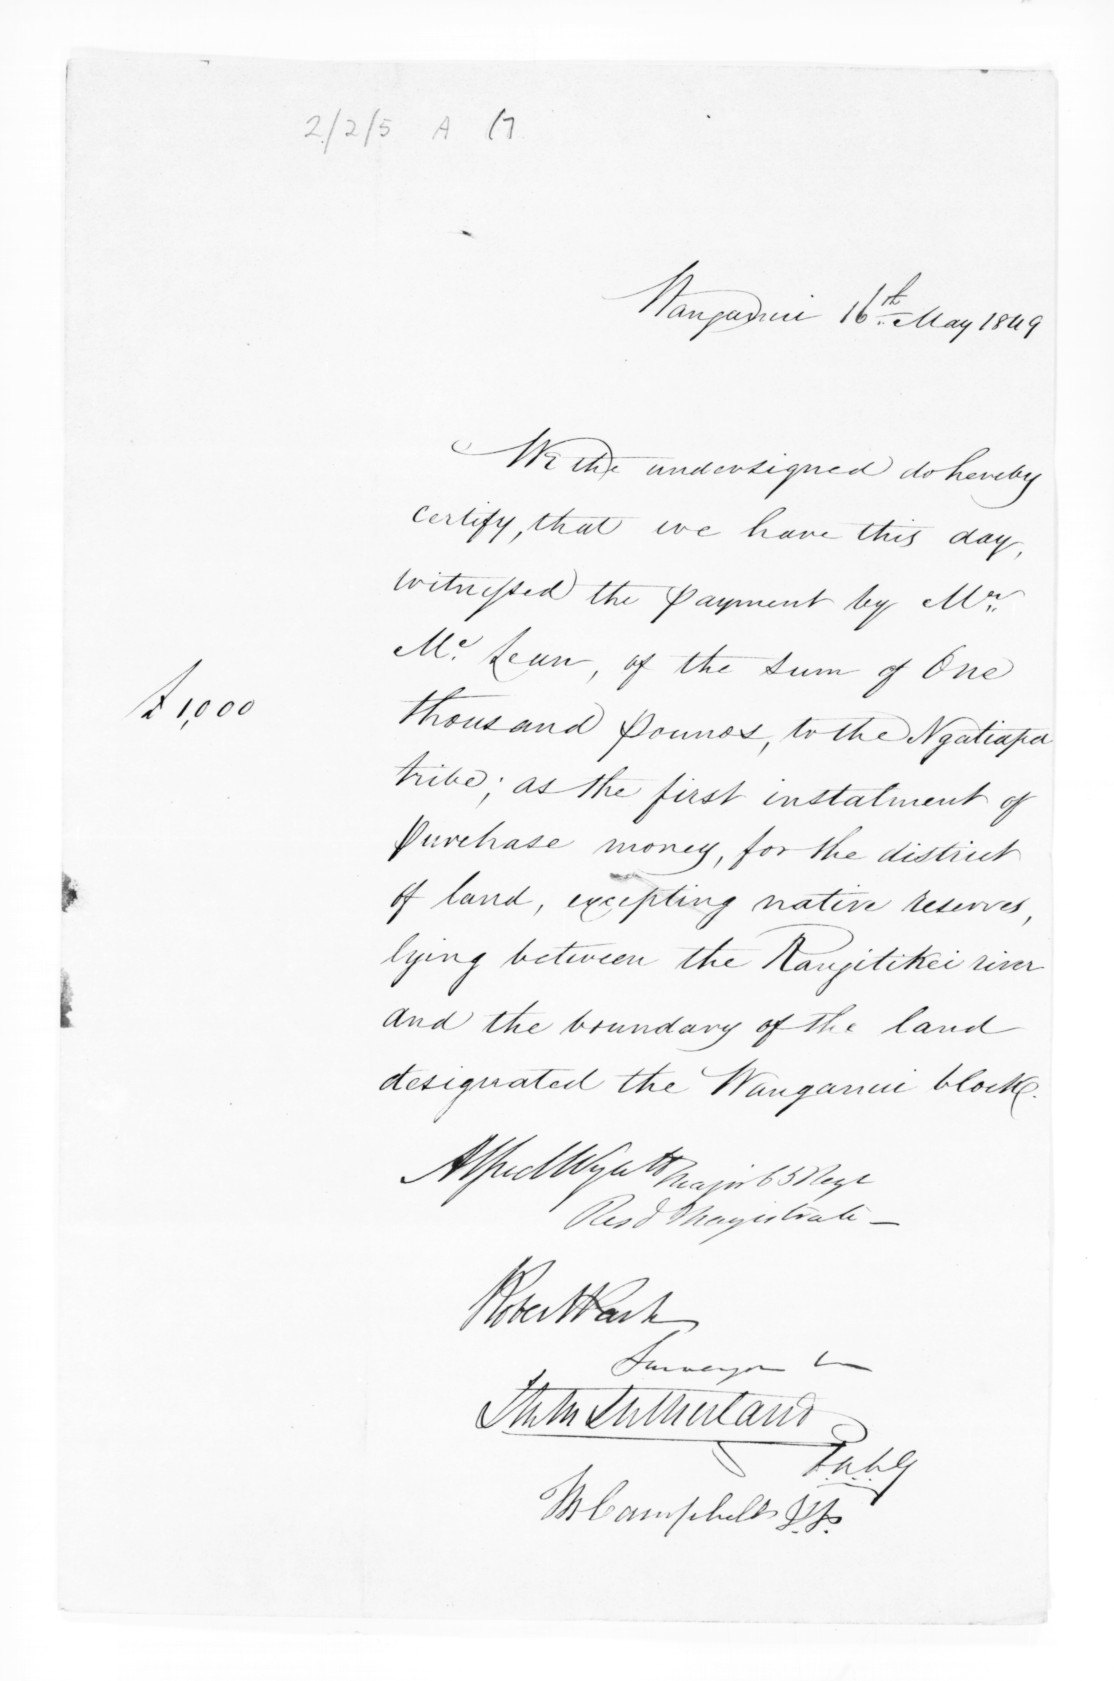 2/2/5 A (7
Wanganui 16th May 1849
We the undersigned do hereby
certify, that we have this day,
witnessed the payment by Mr.
Mc. Lean, of the sum of One
£1,000
thousand pounds, to the Ngatiapa
tribe; as the first instalment of
purchase money, for the district
of land, excepting native reserves,
lying between the Rangitikei river
and the boundary of the land
designated the Wanganui block.
Alfred Wyatt Major 65 Regt
Resd Magistrate
Robert Park
Surveyor
Sutherland
M Campbell J.P.